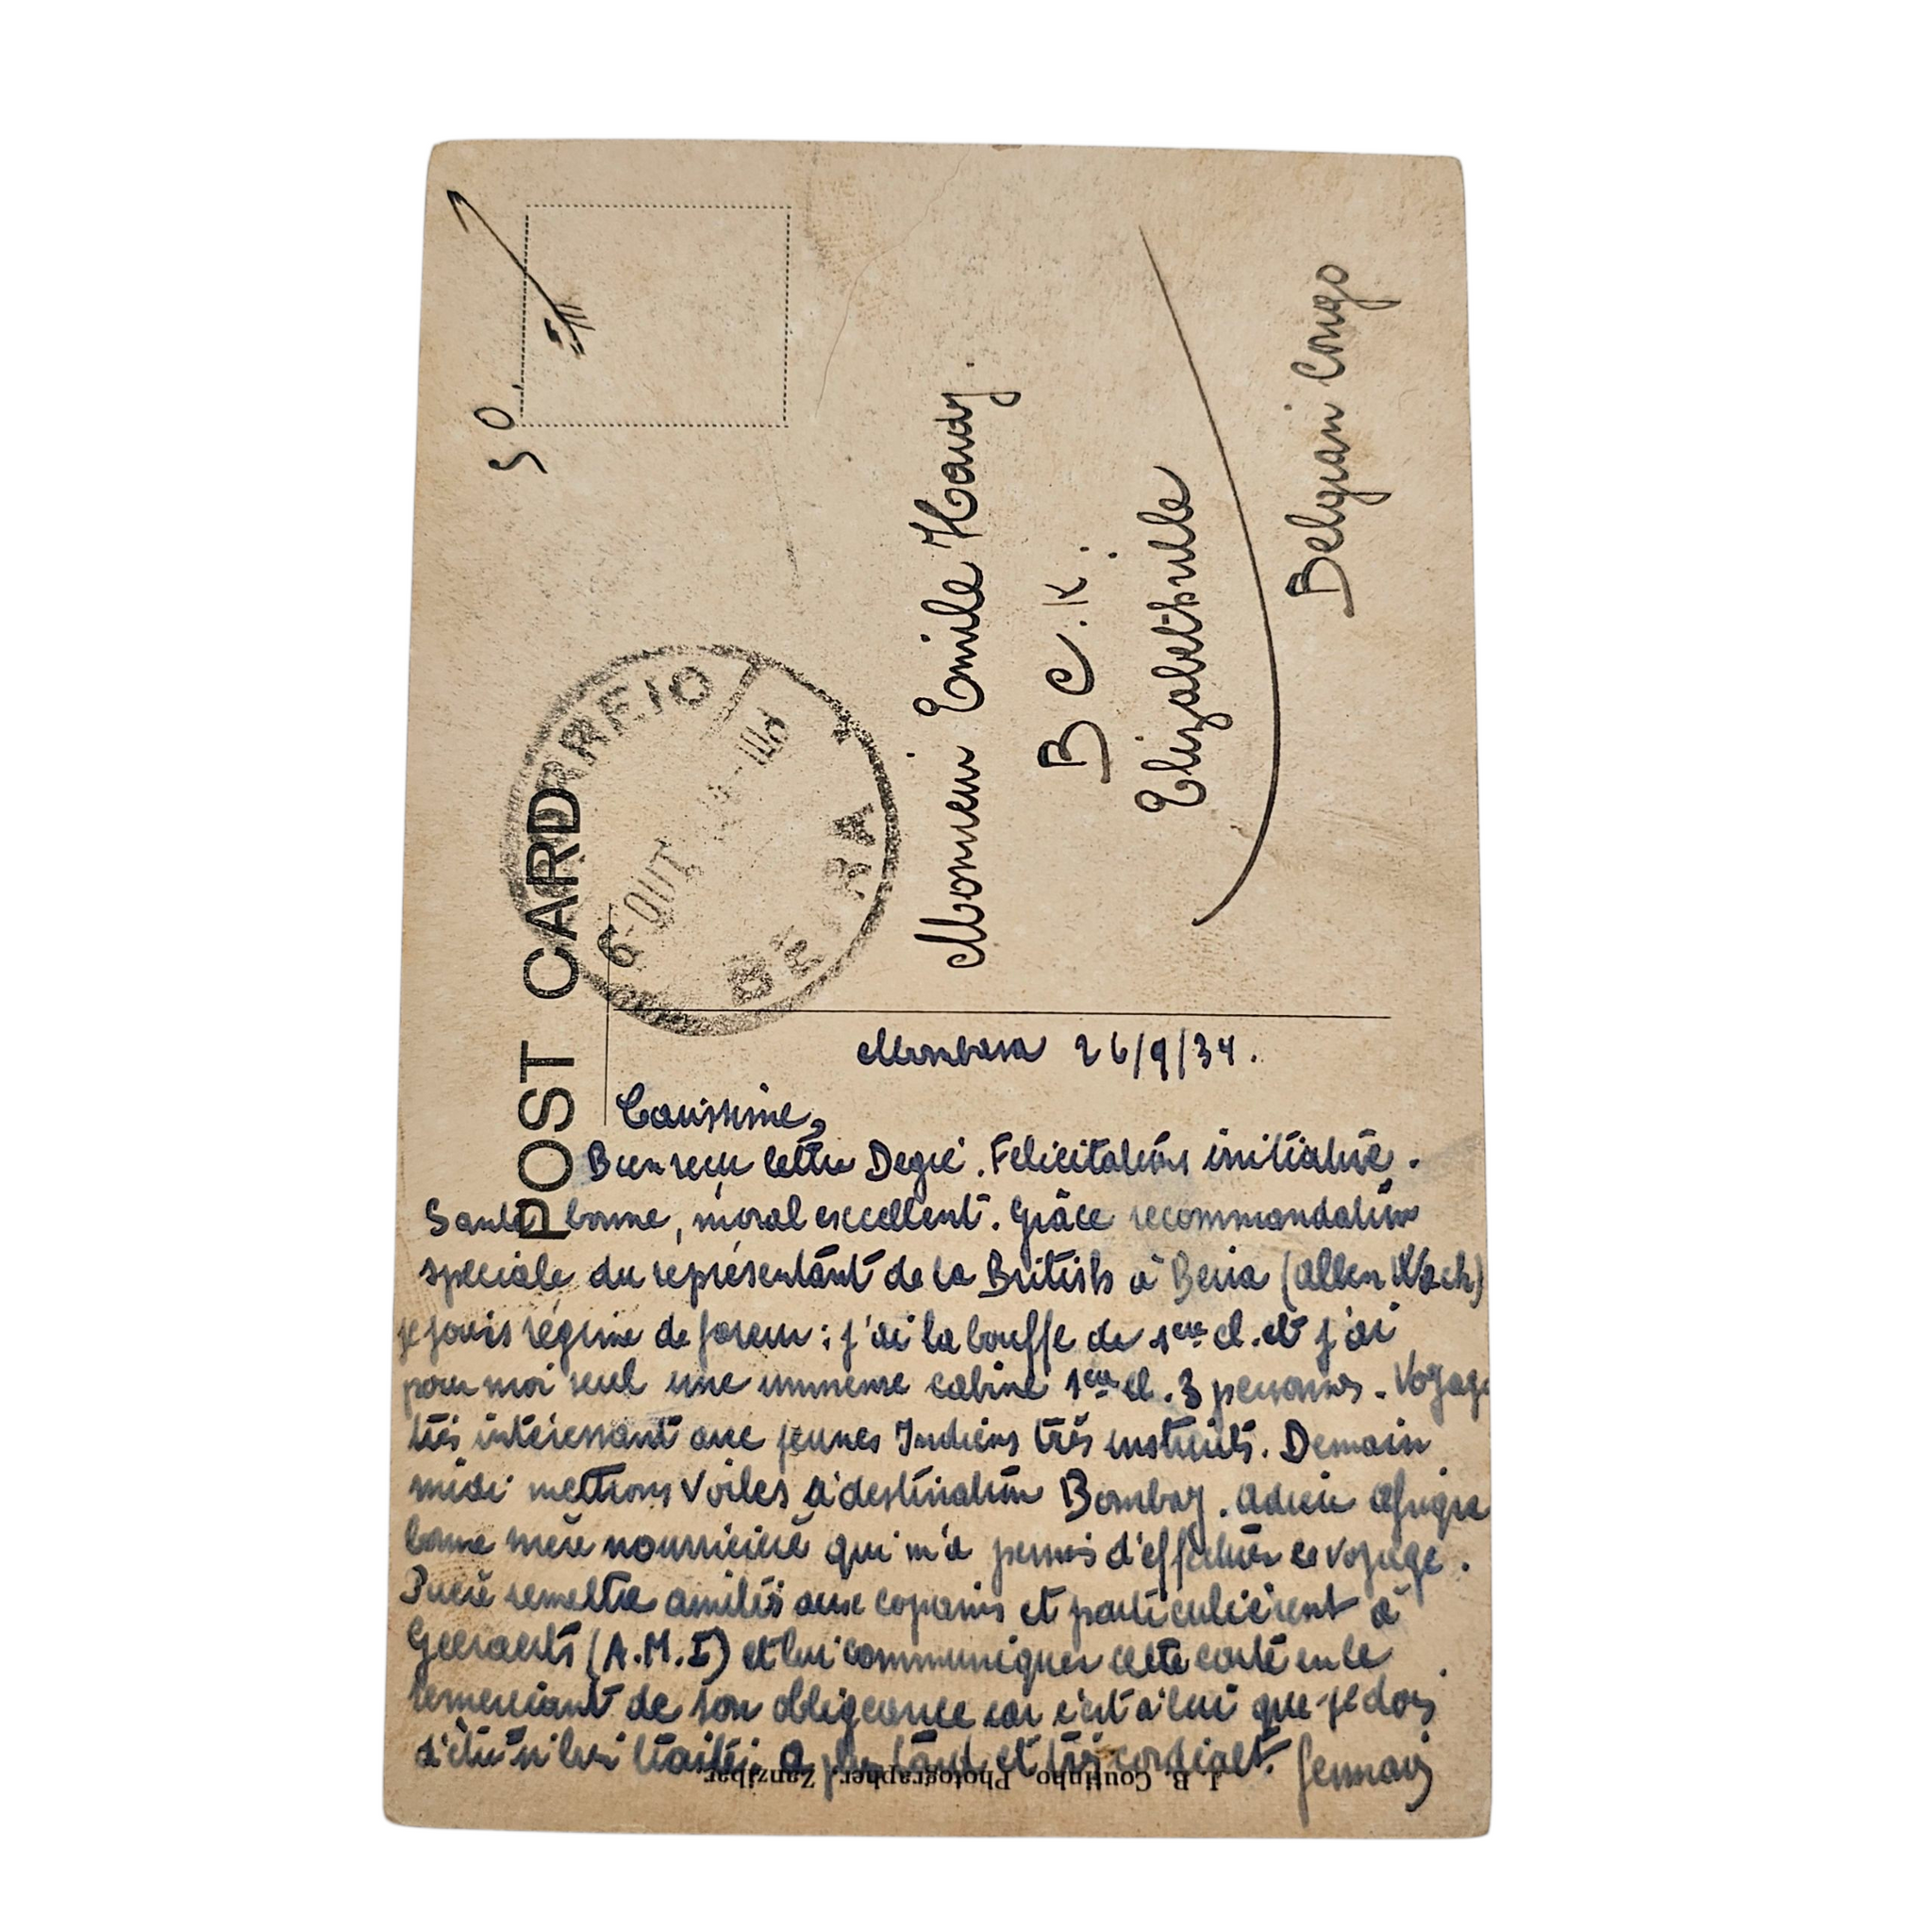 POST CARD
50
CORREIO
6 OUT 34
BEIRA
Monsieur Emile Hardy.
B C.K.
Elizabethville
Belgian Congo
Mombasa 26/9/34.
Carissime,
Bien reçu lettre Degré. Felicitations initiative.
Santé bonne, moral excellent. Grâce recommandation
spéciale du représentant de la British à Beira (Allen Wack)
je jouis régime de faveur : j'ai la bouffe de 1ère cl. et j'ai
pour moi seul une immense cabine 1ère cl. 3 personnes. Voyage
très intéressant avec jeunes Indiens très instruits. Demain
midi mettons voiles à destination Bombay. Adieu Afrique
bonne mère nourricière qui m'a permis d'effectuer ce voyage.
Prière remettre amitiés aux copains et particulièrement à
Geeraerts (A.M.I) et lui communiquer cette carte en le
remerciant de son obligeance car c'est à lui que je dois
d'être si bien traité. A plus tard et très cordialt.
J. B. Coutinho Photographer, Zanzibar.